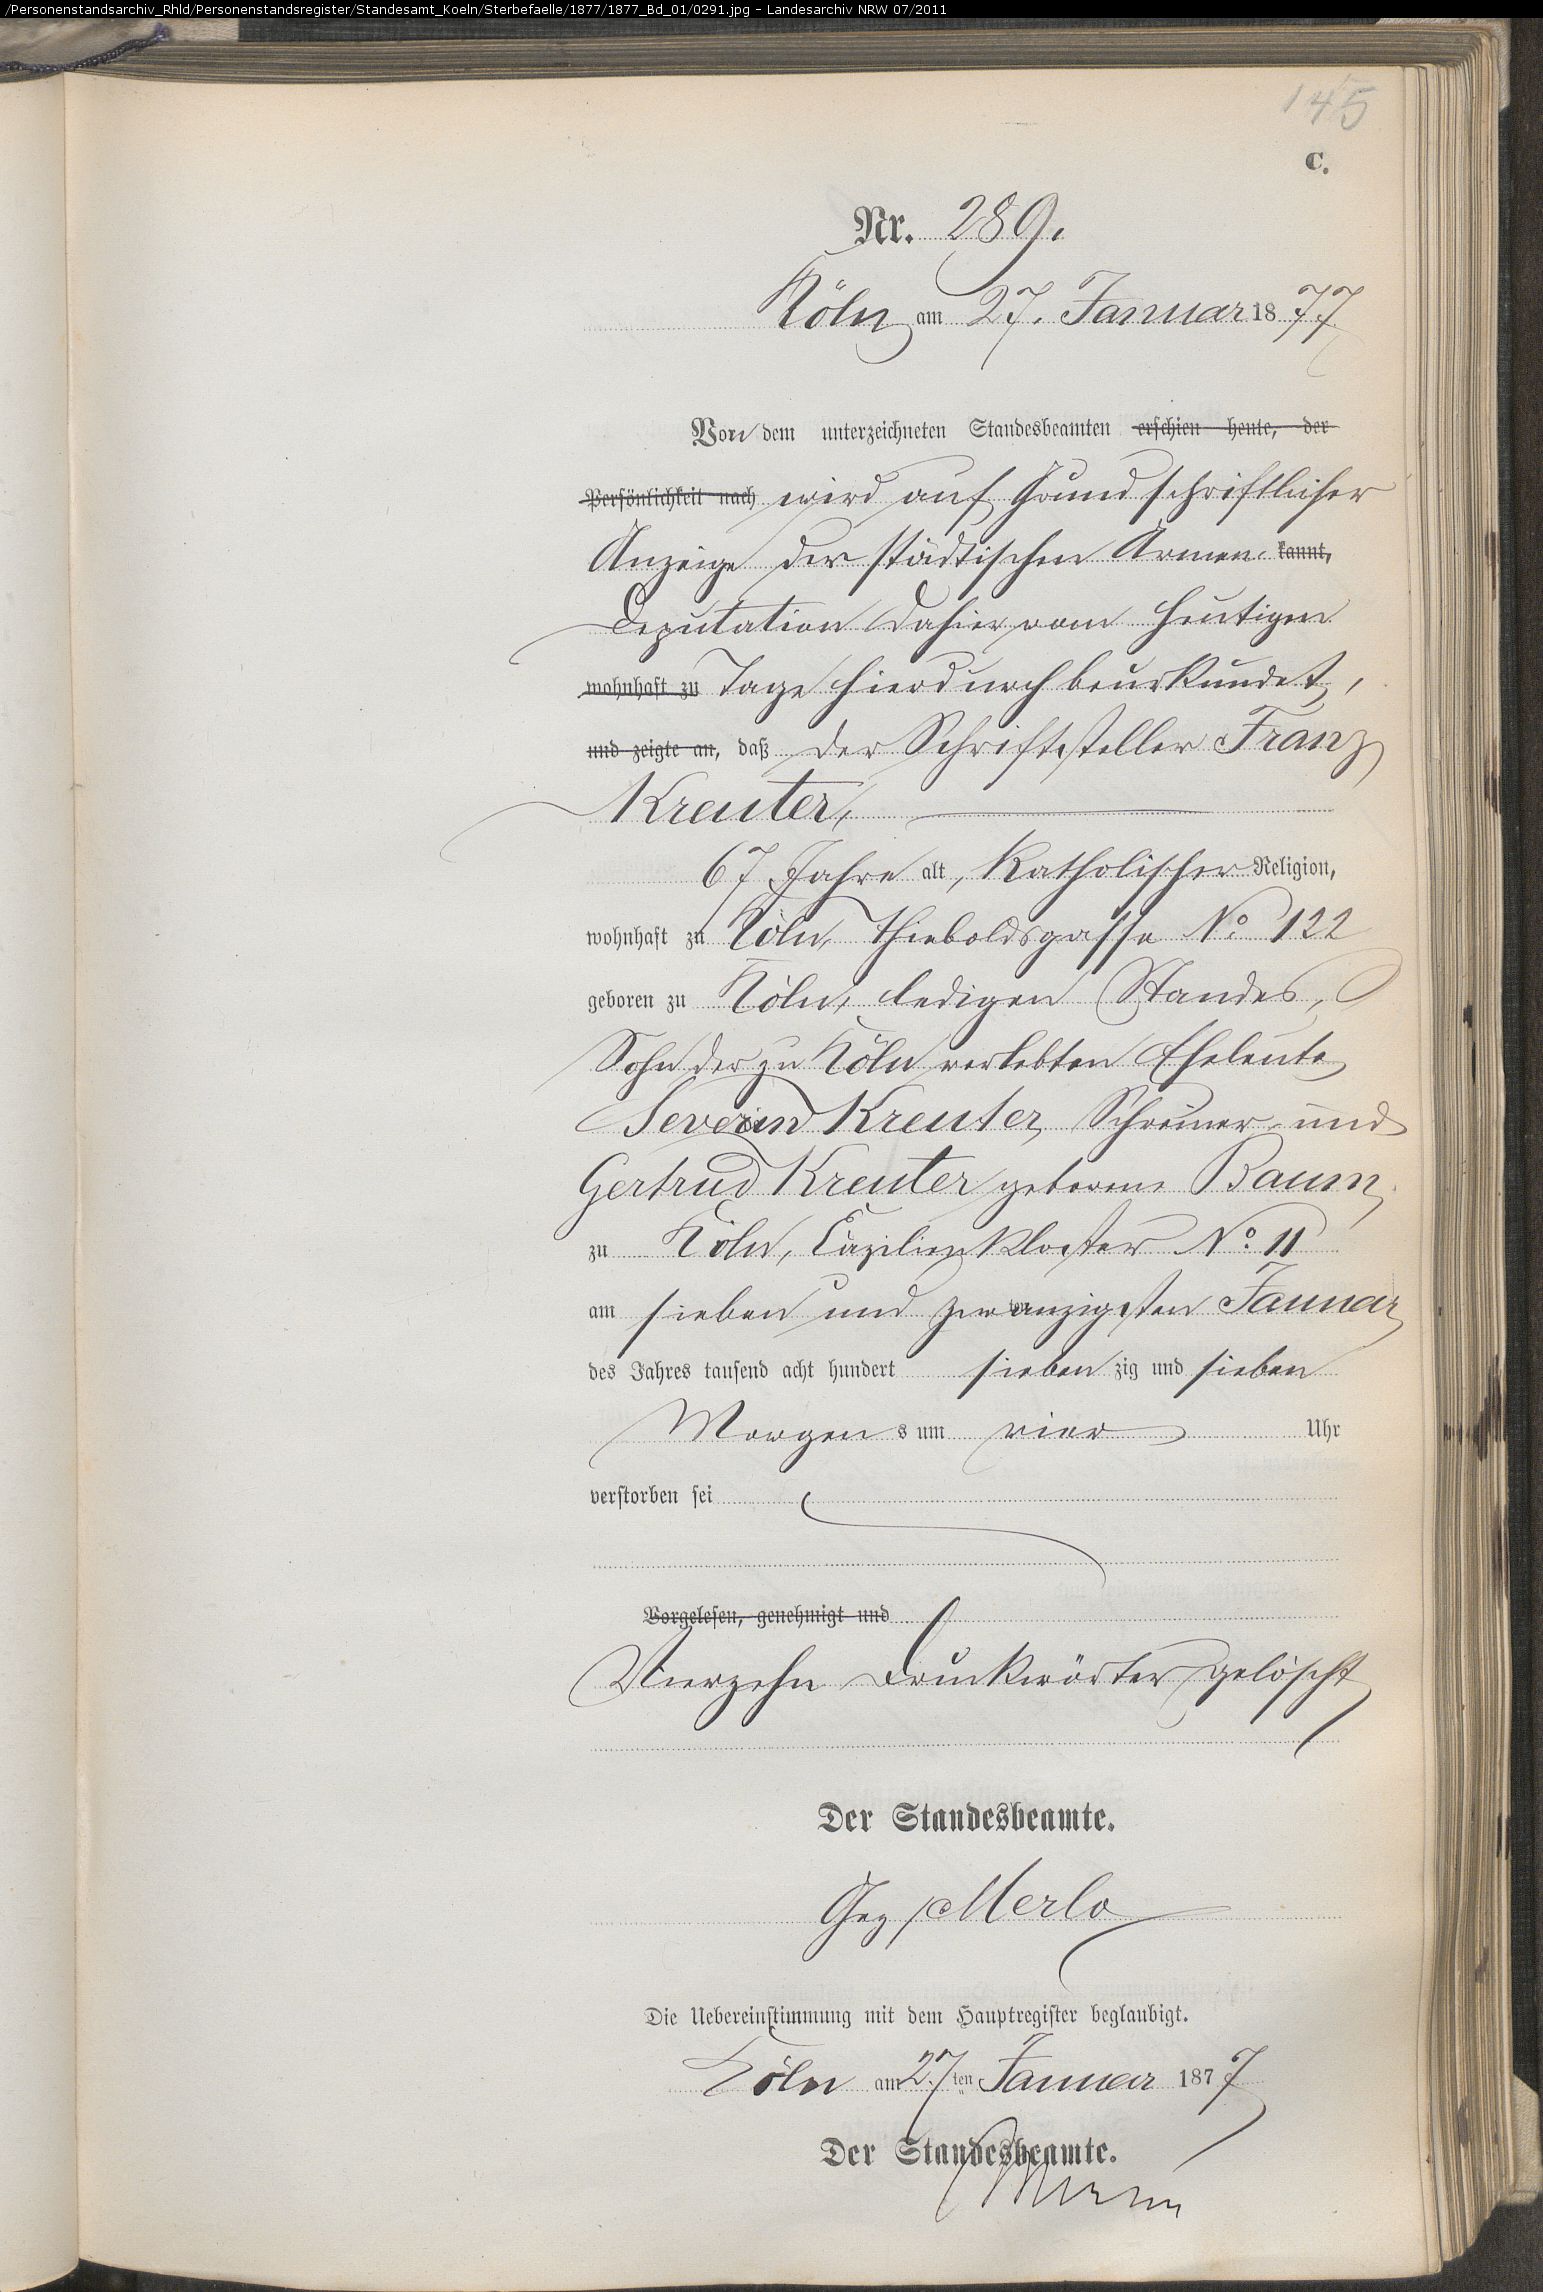 /Personenstandsarchiv_Rhld/Personenstandsregister/Standesamt_Koeln/Sterbefaelle/1877/1877_Bd_01/0291.jpg - Landesarchiv NRW 07/2011
145
C.
Nr. 289.
Köln am 27. Januar 1877
Von dem unterzeichneten Standesbeamten erschien heute, der
Persönlichkeit nach wird auf Grund schriftlicher
Anzeige der städtischen Armen- kannt,
Deputation dahier vom heutigen
wohnhaft zu Tage hierdurch beurkundet,
und zeigte an, daß der Schriftsteller Franz
Kreuter,
67 Jahre alt, Katholischer Religion,
wohnhaft zu Köln, Thieboldsgasse No 122
geboren zu Köln, ledigen Standes,
Sohn der zu Köln verlebten Eheleute
Severin Kreuter, Schreiner und
Gertrud Kreuter geborene Baum,
zu Köln, Cäzilienkloster No 11
am sieben und zwanzigsten Januar
des Jahres tausend acht hundert siebenzig und sieben
Morgens um vier Uhr
verstorben sei
Vorgelesen, genehmigt und
Vierzehn Druckwörter gelöscht
Der Standesbeamte.
Gez Merlo
Die Uebereinstimmung mit dem Hauptregister beglaubigt.
Köln am 27ten Januar 1877
Der Standesbeamte.